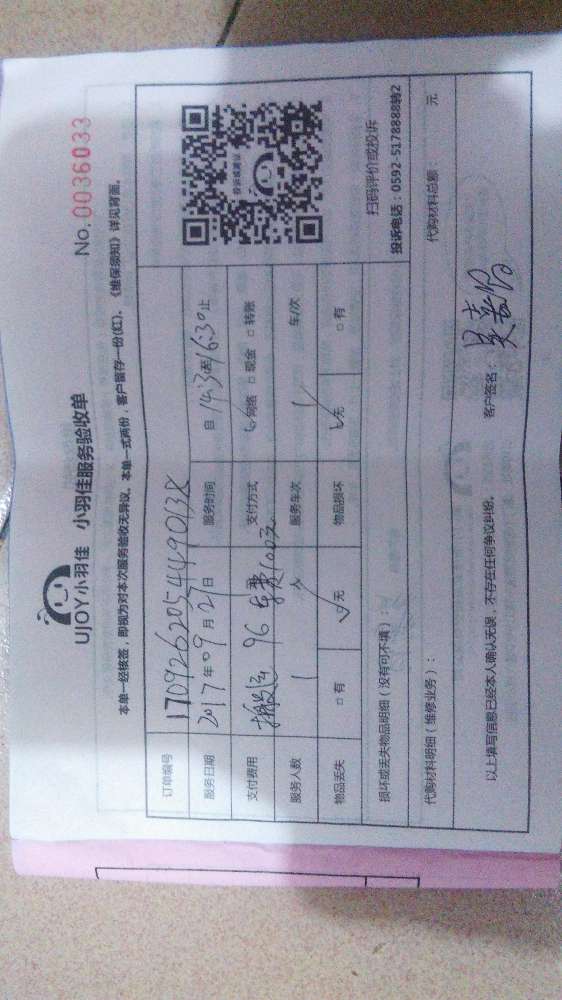 UJOY小羽佳 小羽佳服务验收单 No. 0036033
本单一经核签，即视为对本次服务验收无异议。本单一式两份，客户留存一份(红)。《维保须知》详见背面。
订单编号 170926205449013X
服务日期 2017 年 9 月 21 日 服务时间 自 14:30 至 16:30 止
支付费用 搬运 96 车费100元 支付方式 网络 □ 现金 □ 转账
服务人数 1 人 服务车次 1 车/次
物品丢失 □ 有 ✓无 物品损坏 ✓无 □ 有
扫码评价或投诉
投诉电话：0592-5178888转2
损坏或丢失物品明细（没有可不填）：
代购材料明细（维修业务）： 代购材料总额： 元
以上填写信息已经本人确认无误，不存在任何争议纠纷。 客户签名：